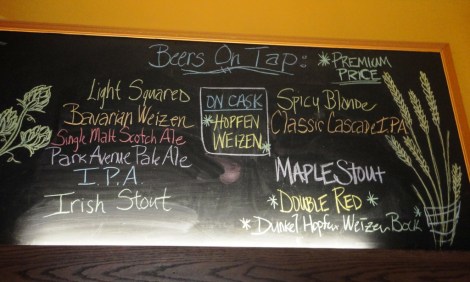 Beers On Tap:
*PREMIUM
PRICE*
Light Squared
Bavarian Weizen
Single Malt Scotch Ale
Park Avenue Pale Ale
I.P.A.
Irish Stout
ON CASK
*HOPFEN
WEIZEN*
Spicy Blonde
Classic Cascade IPA
MAPLE Stout
*DOUBLE RED*
*Dunkel Hopfen Weizen Bock*